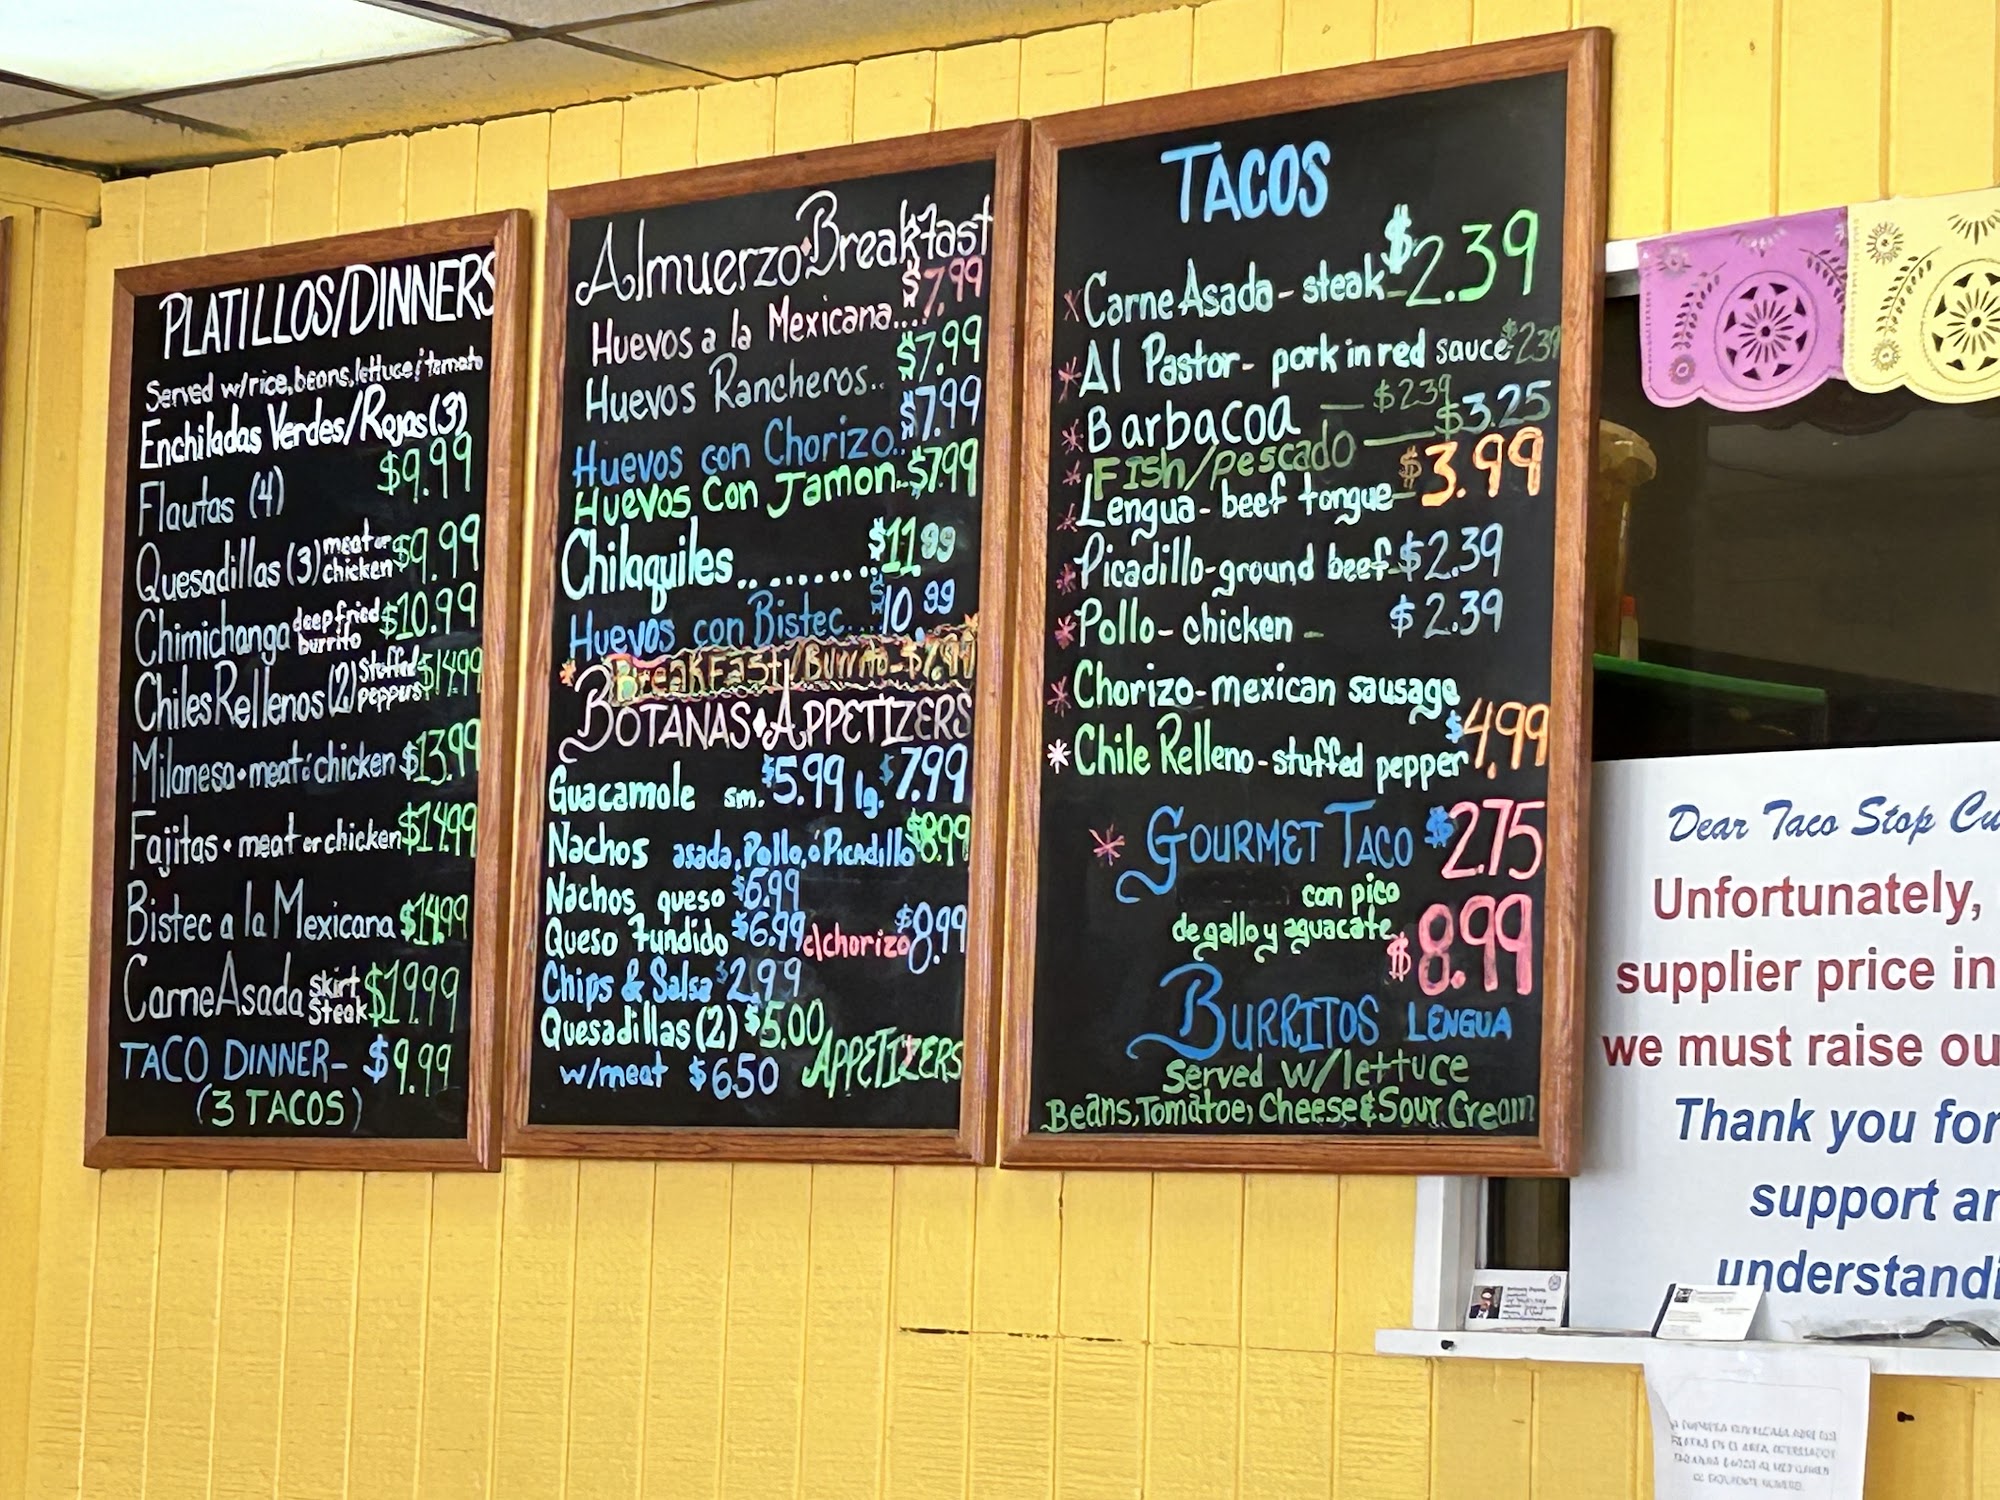 PLATILLOS/DINNERS
Served w/rice, beans, lettuce/tomato
Enchiladas Verdes/Rojas(3)
$9.99
Flautas (4)
Quesadillas (3) meat or chicken $9.99
Chimichanga deep fried burrito $10.99
Chiles Rellenos (2) Stuffed peppers $14.99
Milanesa • meat ó chicken $13.99
Fajitas • meat or chicken $14.99
Bistec a la Mexicana $14.99
Carne Asada Skirt Steak $19.99
TACO DINNER- $9.99
(3 TACOS)
Almuerzo•Breakfast
Huevos a la Mexicana... $7.99
Huevos Rancheros.. $7.99
Huevos con Chorizo.. $7.99
Huevos con Jamon.. $7.99
Chilaquiles.......... $11.99
Huevos con Bistec... $10.99
* Breakfast/Burrito-$7.99
BOTANAS•APPETIZERS
Guacamole sm. $5.99 lg. $7.99
Nachos asada, Pollo, ó Picadillo $8.99
Nachos queso $6.99
Queso Fundido $6.99 c/chorizo $8.99
Chips & Salsa $2.99
Quesadillas (2) $5.00
w/meat $6.50 APPETIZERS
TACOS
* Carne Asada - steak - $2.39
* Al Pastor - pork in red sauce $2.39
* Barbacoa — $2.39
* Fish/pescado — $3.25
* Lengua - beef tongue - $3.99
* Picadillo - ground beef - $2.39
* Pollo - chicken - $2.39
* Chorizo - mexican sausage
* Chile Relleno - stuffed pepper $4.99
* GOURMET TACO $2.75
con pico
de gallo y aguacate
$8.99
BURRITOS LENGUA
Served w/lettuce
Beans, Tomatoe, Cheese & Sour Cream
Dear Taco Stop Cu
Unfortunately,
supplier price in
we must raise ou
Thank you for
support an
understandi